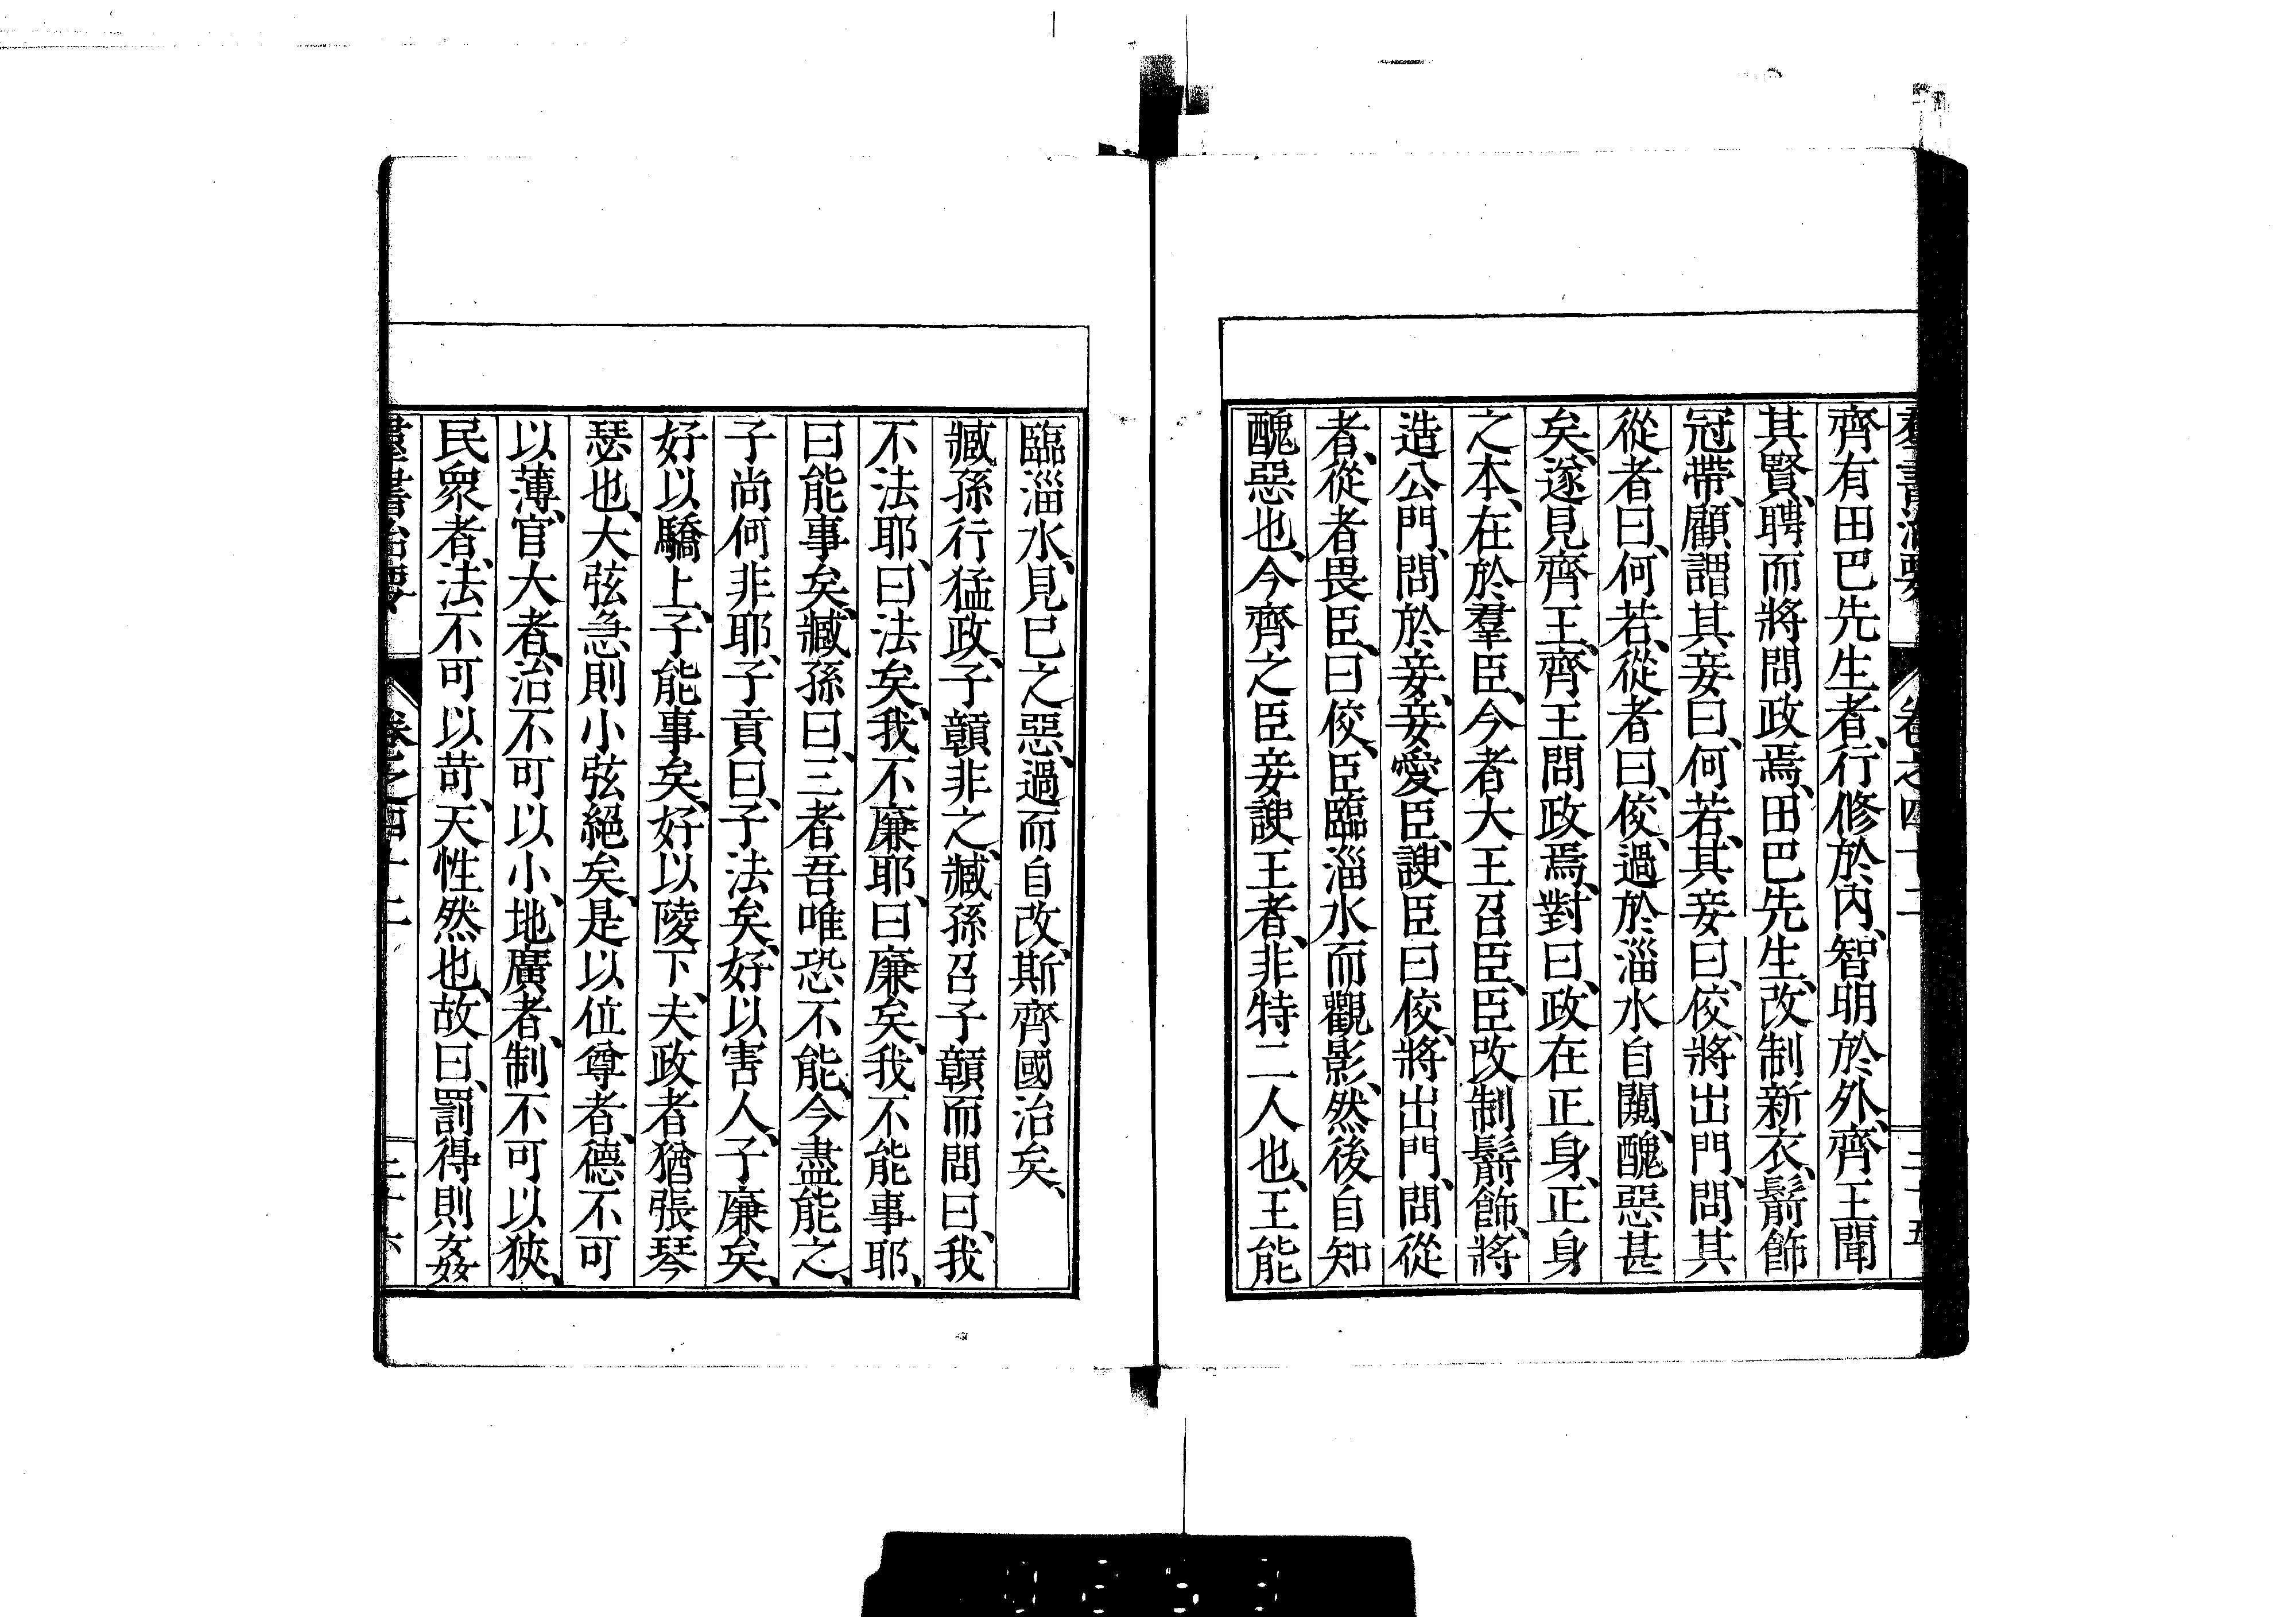 羣書治要 卷之四十二 三十五
齊有田巴先生者、行修於內、智明於外、齊王聞
其賢、聘而將問政焉、田巴先生、改制新衣、鬋飾
冠帶、顧謂其妾曰、何若、其妾曰、佼、將出門、問其
從者曰、何若、從者曰、佼、過於淄水自闚、醜惡甚
矣、遂見齊王、齊王問政焉、對曰、政在正身、正身
之本、在於羣臣、今者大王召臣、臣改制鬋飾、將
造公門、問於妾、妾愛臣、諛臣曰佼、將出門、問從
者、從者畏臣、曰佼、臣臨淄水而觀影、然後自知
醜惡也、今齊之臣妾諛王者、非特二人也、王能
臨淄水、見已之惡、過而自改、斯齊國治矣、
臧孫行猛政、子贛非之、臧孫召子贛而問曰、我
不法耶、曰法矣、我不廉耶、曰廉矣、我不能事耶、
曰能事矣、臧孫曰、三者吾唯恐不能、今盡能之、
子尚何非耶、子貢曰、子法矣、好以害人、子廉矣、
好以驕上、子能事矣、好以陵下、夫政者猶張琴
瑟也、大弦急則小弦絕矣、是以位尊者、德不可
以薄、官大者、治不可以小、地廣者、制不可以狹、
民衆者、法不可以苛、天性然也、故曰、罰得則姦
羣書治要 卷之四十二 三十六